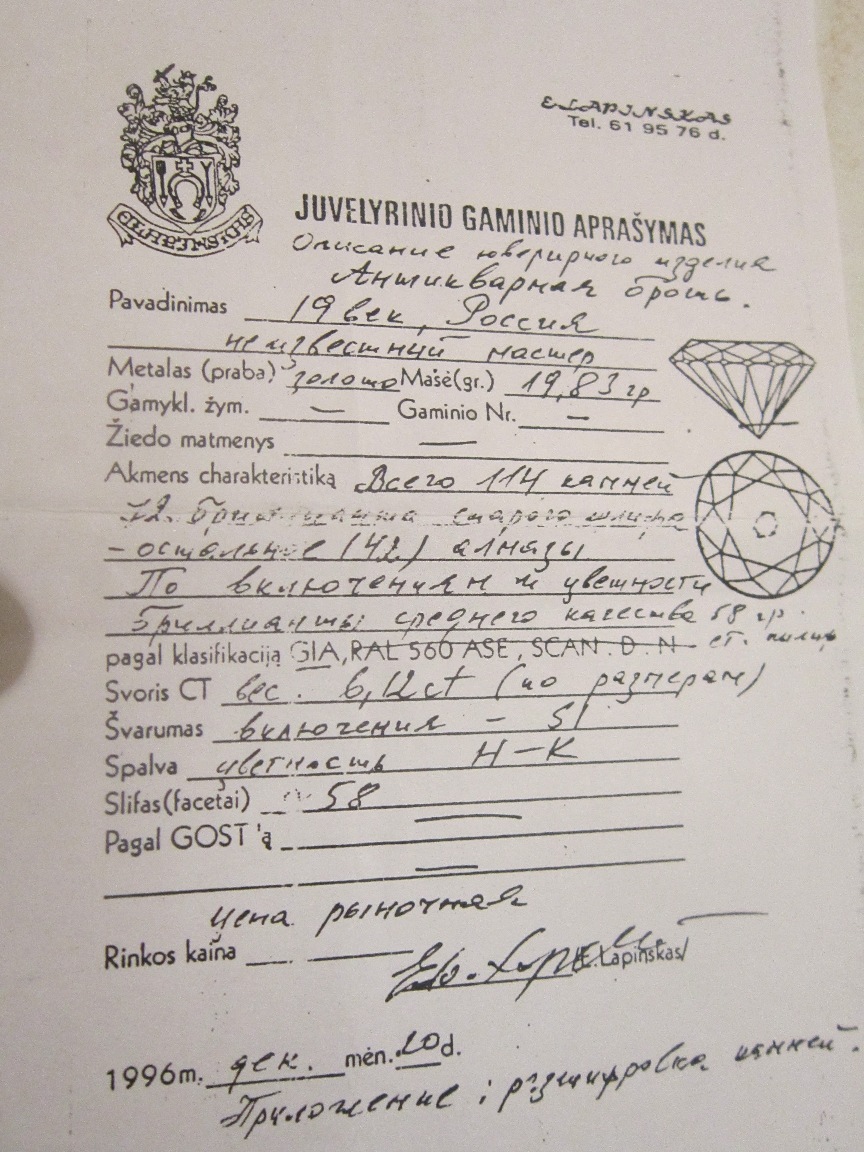 E LAPINSKAS
Tel. 61 95 76 d.
E.LAPINSKAS
JUVELYRINIO GAMINIO APRAŠYMAS
Описание ювелирного изделия
Антикварная брошь.
Pavadinimas 19 век, Россия
неизвестный мастер
Metalas (praba) золото Masė(gr.) 19,83 гр
Gamykl. žym. — Gaminio Nr. —
Žiedo matmenys —
Akmens charakteristiką Всего 114 камней
72 бриллианта старого шлифа
- остальное (42) алмазы
По включениям и цветности
бриллианты среднего качества 58 гр.
pagal klasifikaciją GIA, RAL 560 ASE, SCAN. D. N ст.
Svoris CT вес. 6,12ct (по размерам)
Švarumas включения - SI
Spalva цветность H-K
Slifas(facetai) 58
Pagal GOST'ą —
—
цена рыночная
Rinkos kaina — E.Lapinskas/
1996m. дек. mėn. 20 d.
Приложение: расшифровка камней.